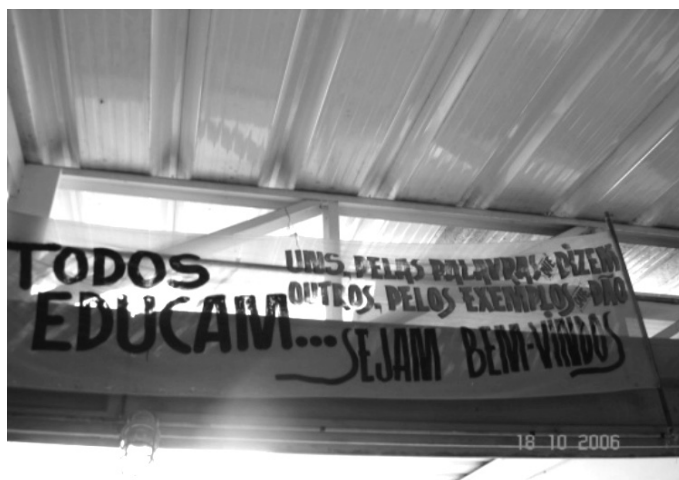 TODOS
EDUCAM...
UNS, PELAS PALAVRAS QUE DIZEM
OUTROS, PELOS EXEMPLOS QUE DÃO
SEJAM BEM-VINDOS
18 10 2006